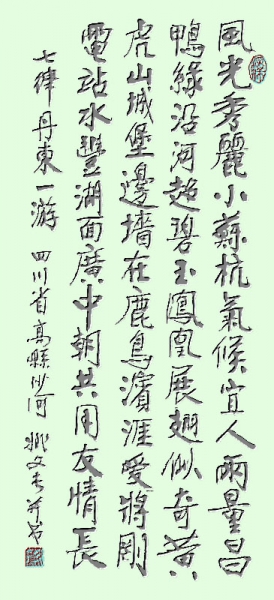 風光秀麗小蘇杭氣候宜人兩量昌
鴨緣沿河超碧玉鳳凰展翅似奇黄
虎山城堡邊墻在鹿鳥濱涯愛將剛
電站水豐湖面廣中朝共用友情長
七律丹東一游 四川省高縣沙河 姚文